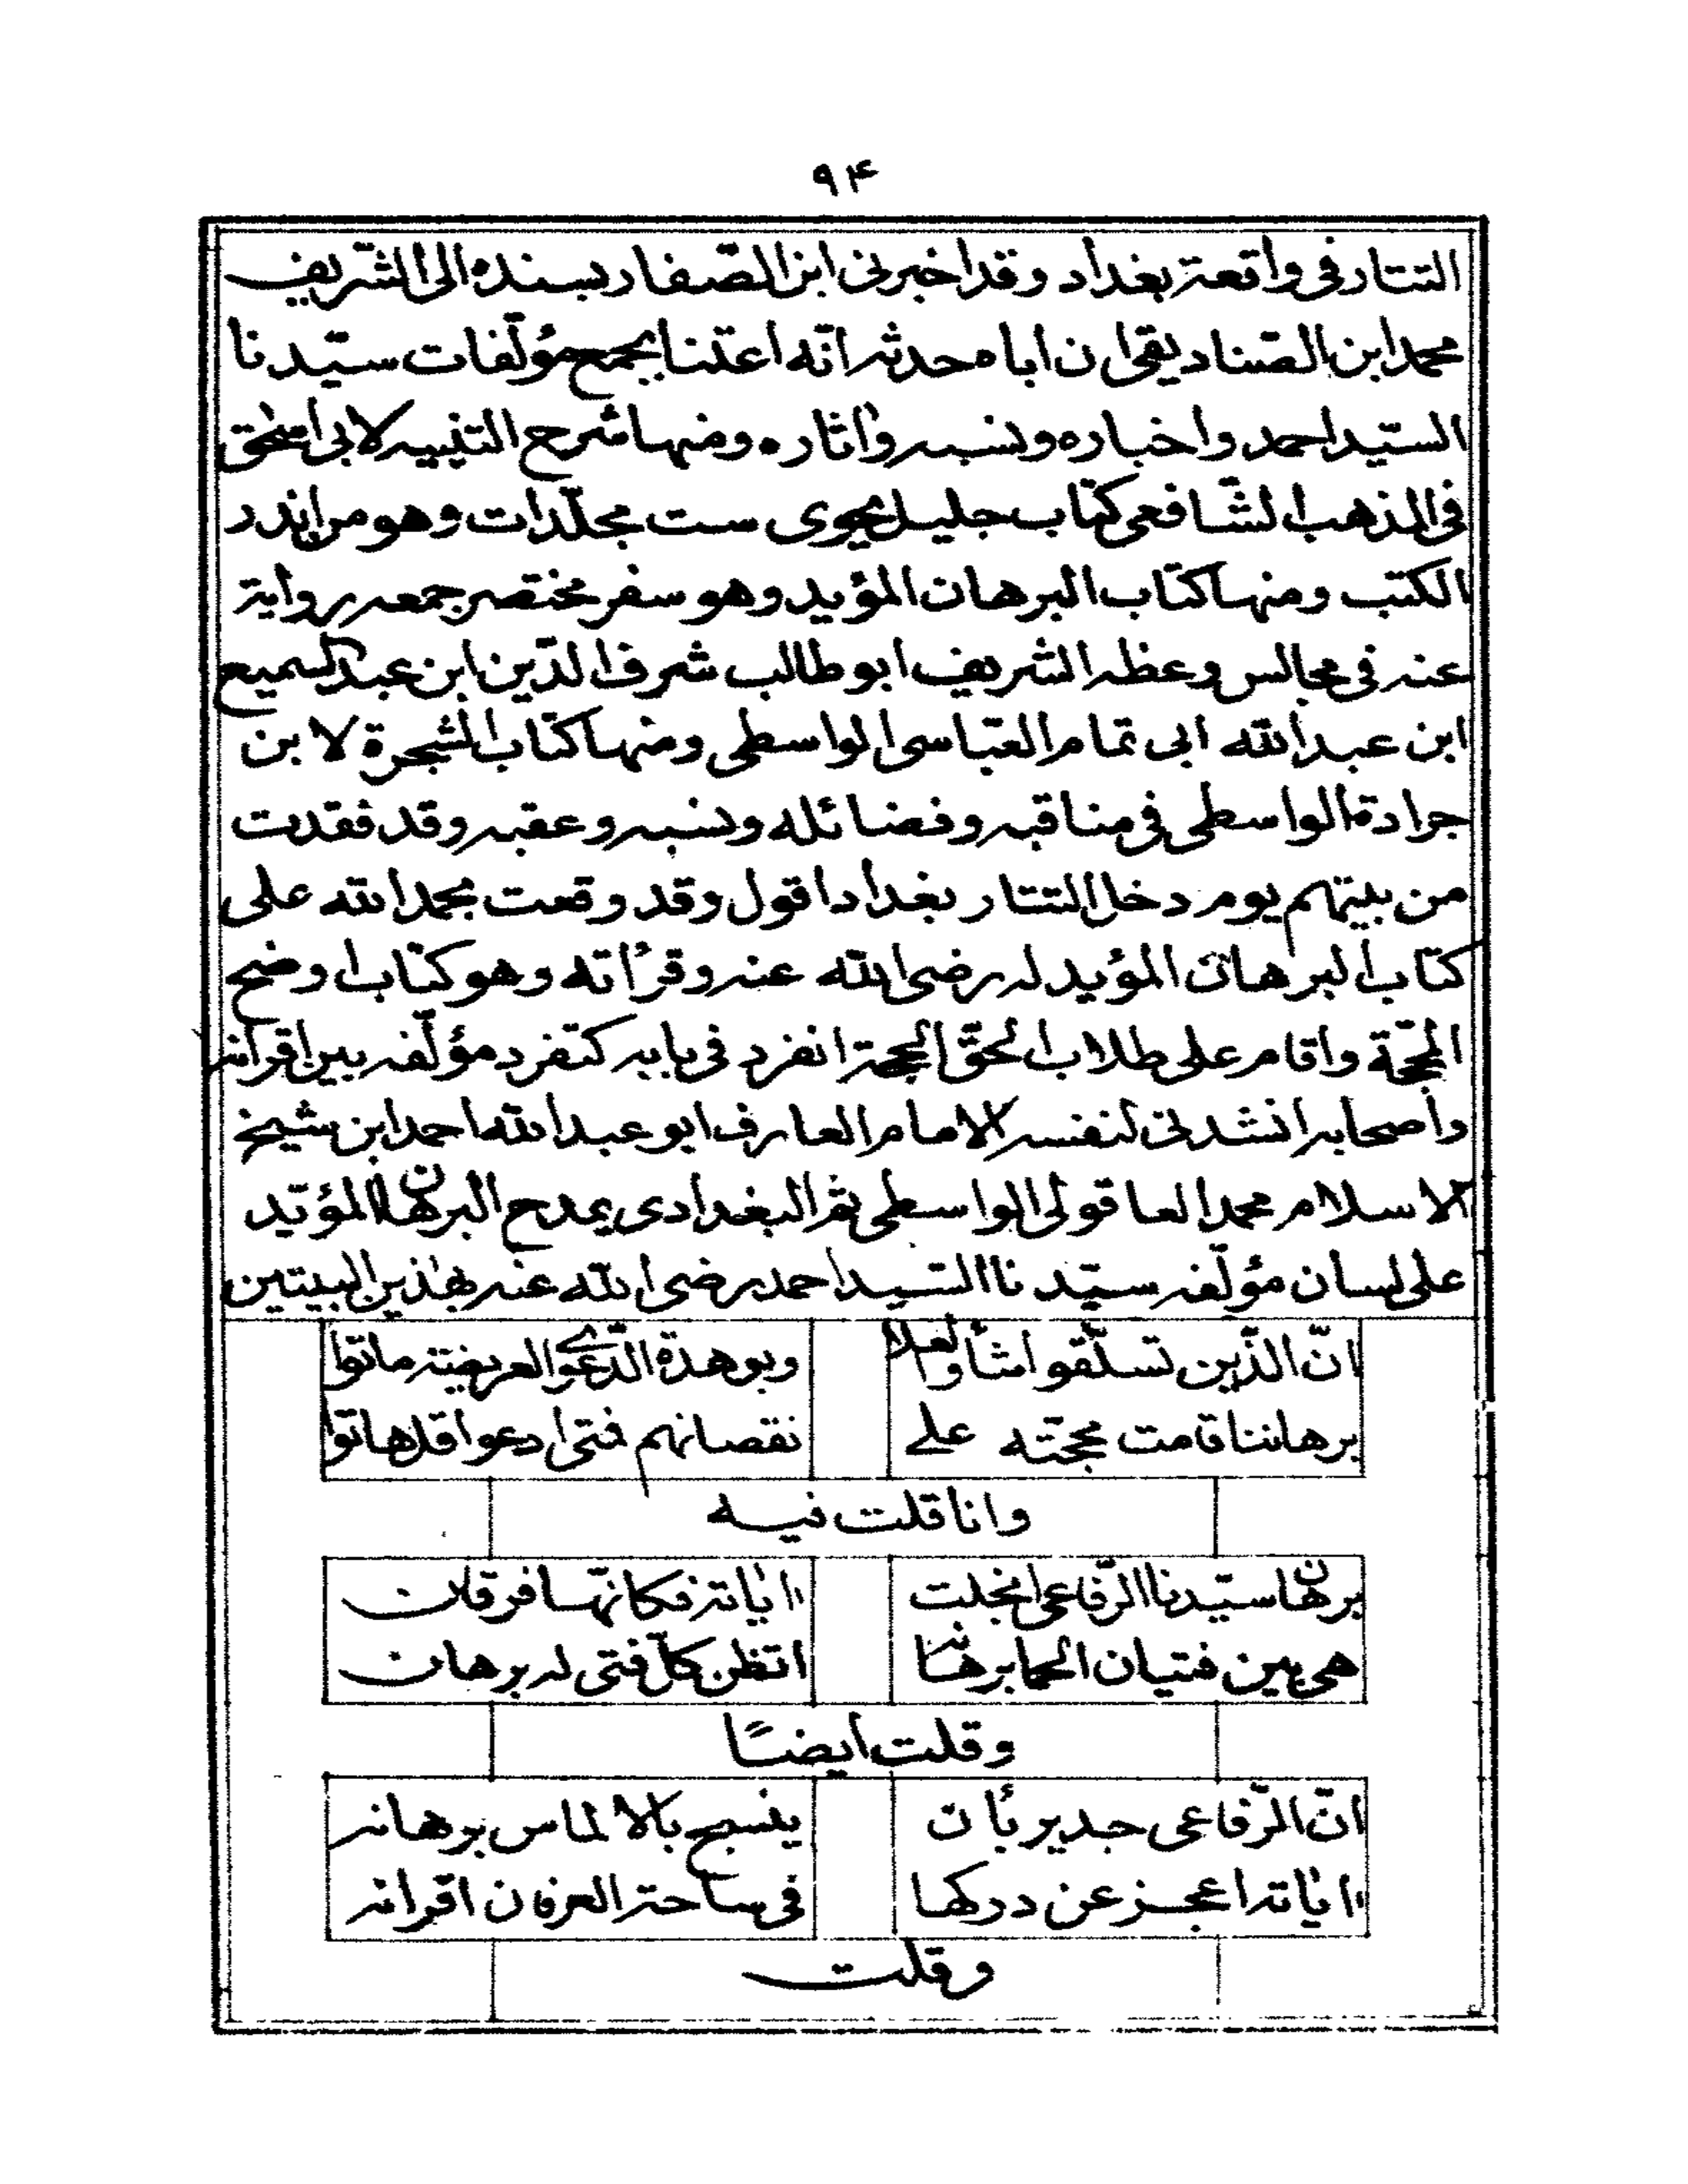 ٩۴
التتار فى واقعة بغداد وقد اخبرنى ابن الصّفار بسنده الى الشّريف
محمد ابن الصّناديقى ان اباه حدثه انّه اعتنا بجمع مؤلّفات سيّدنا
السيّد احمد واخباره ونسبه واٰثاره ومنها شرح التنبيه لابى اسحٰق
فى المذهب الشّافعى كتاب جليل يحوى ست مجلّدات وهو من اندر
الكتب ومنها كتاب البرهان المؤيد وهو سفر مختصر جمعه رواية
عنه فى مجالس وعظه الشريف ابو طالب شرف الدّين ابن عبد السميع
ابن عبد الله ابى تمام العبّاسى الواسطى ومنها كتاب الشجرة لابن
جرادة الواسطى فى مناقبه وفضائله ونسبه وعقبه وقد فقدت
من بيتهم يوم دخل التتار بغداد اقول وقد وقعت بحمد الله على
كتاب البرهان المؤيد له رضى الله عنه وقرأته وهو كتاب اوضح
المحجّة واقام على طلاب الحقّ الحجة انفرد فى بابه كتفرد مؤلّفه بين اقرانه
واصحابه انشدنى لنفسه الامام العارف ابو عبد الله احمد ابن شيخ
الاسلام محمد العاقولى الواسطى ثم البغدادى يمدح البرهان المؤيّد
على لسان مؤلّفه سيّدنا السّيد احمد رضى الله عنه بهٰذين البيتين
انّ الذّين تسلّقوا شأو العلا وبو هذة الدّعوے العريضة ماتوا
برهاننا قامت محجّته علے نقصانهم فتى ادعوا قل هاتوا
وانا قلت فيه
برهان سيّدنا الرّفاعى انجلت اٰياته فكانّها فرقان
هى بين فتيان الحما برهانه اتظن كلّ فتى له برهان
وقلت ايضًا
انّ الرّفاعى جدير بأن ينسج بالالماس برهانه
اٰياته اعجز عن دركها فى ساحة العرفان اقرانه
وقلت